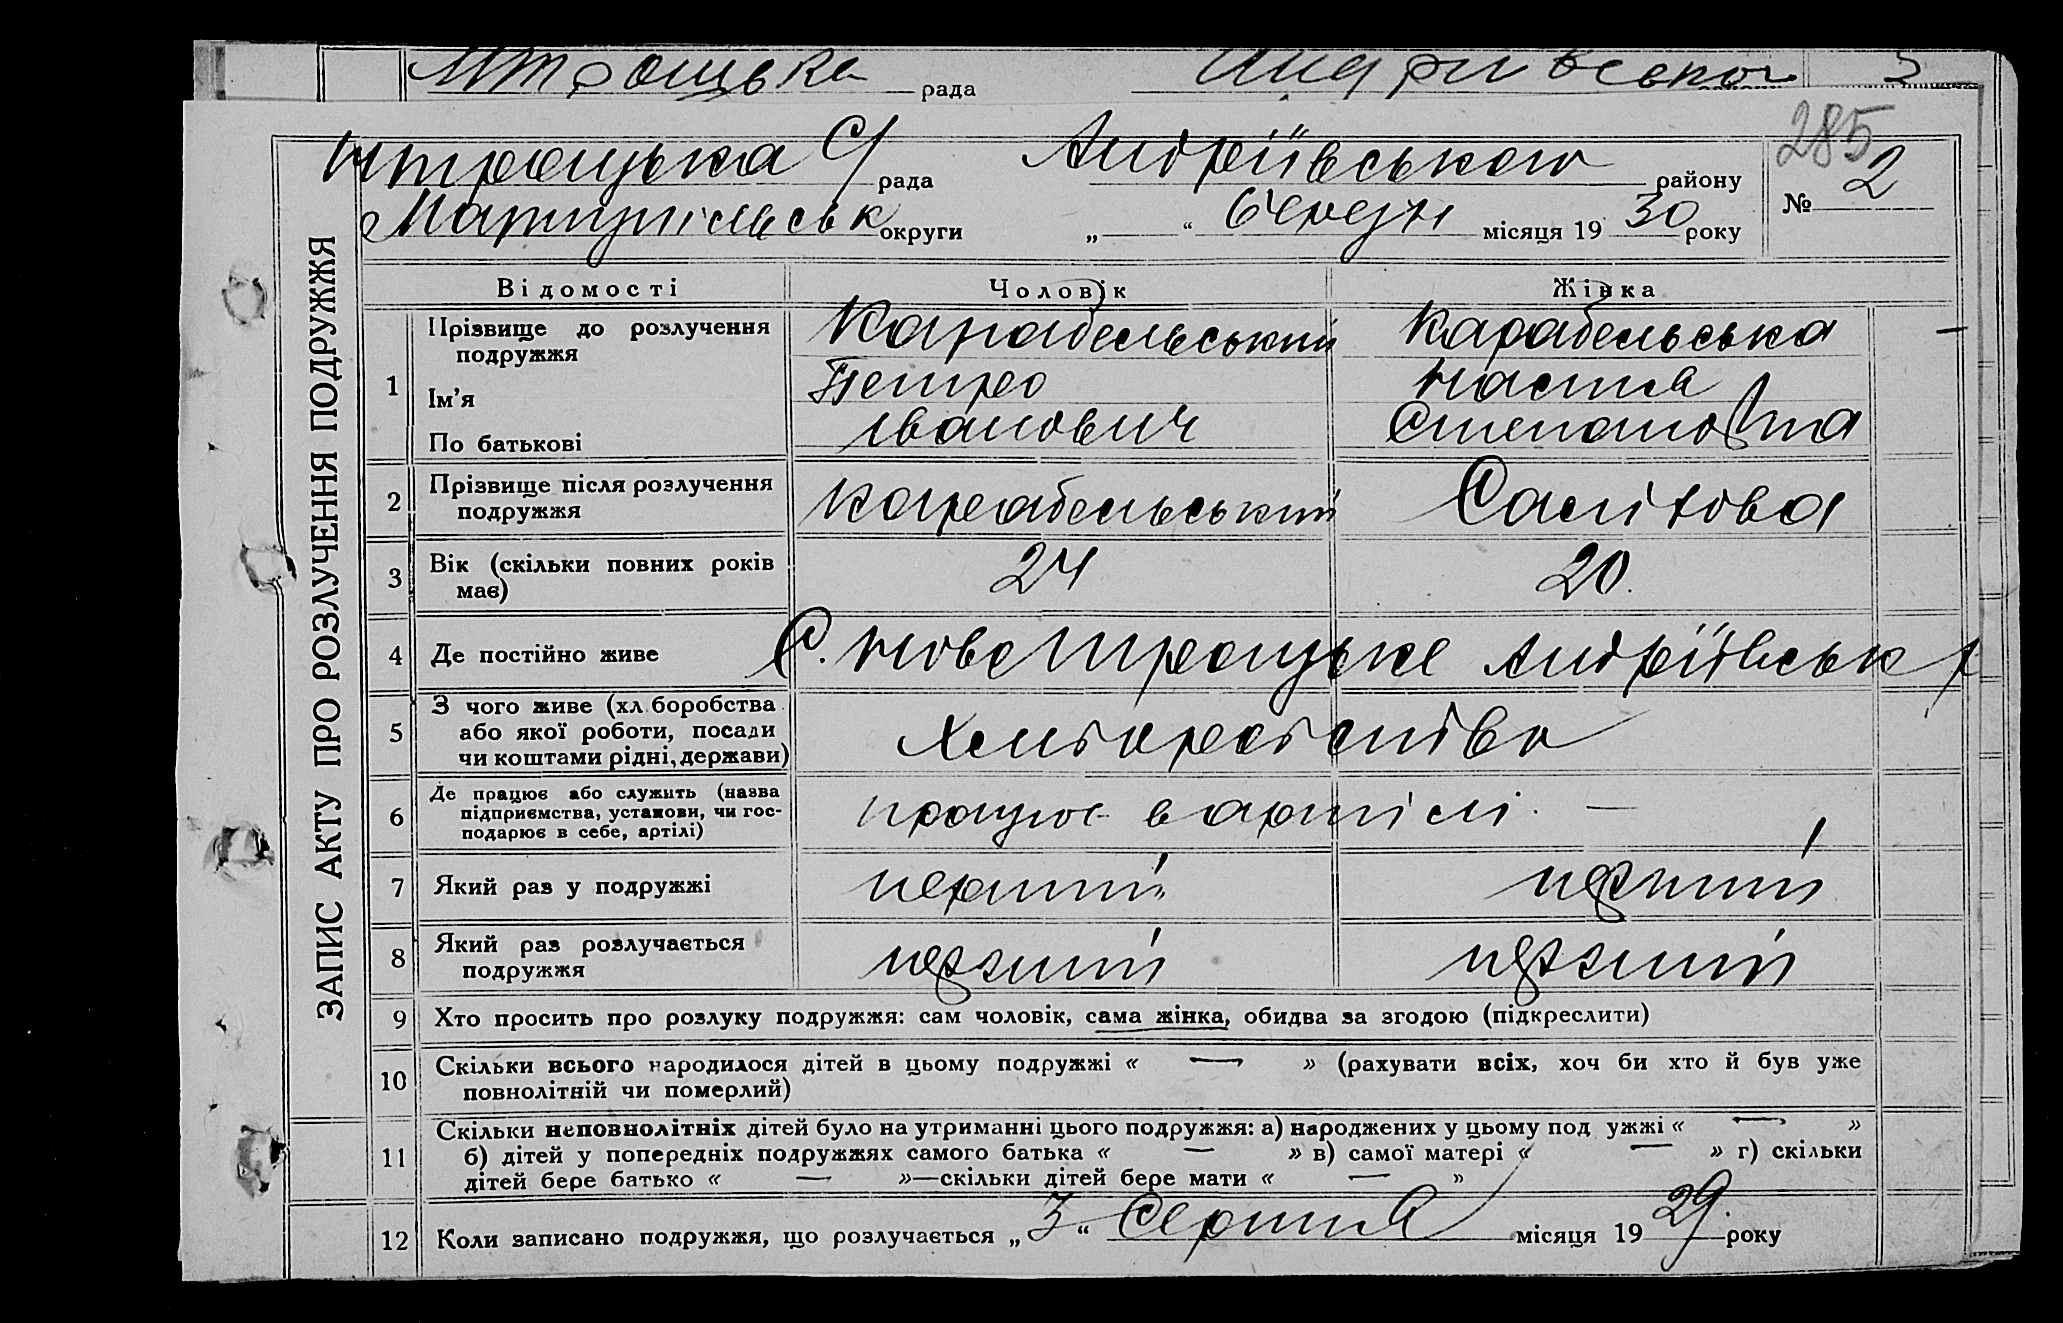 рада
285
Нтроцька С/рада Андріївського району № 2
Маріупільськ округи „ “ 6 Червня місяця 19 30 року
ЗАПИС АКТУ ПРО РОЗЛУЧЕННЯ ПОДРУЖЖЯ
Відомості Чоловік Жінка
1 Прізвище до розлучення Карабельський Карабельська
подружжя
Ім’я Петро Настя
По батькові Іванович Степановна
2 Прізвище після розлучення Карабельський
подружжя
3 Вік (скільки повних років 24 20.
має)
4 Де постійно живе С. Ново Троцьке Андріївськ р
5 З чого живе (хл.боробства Хліборобство
або якої роботи, посади
чи коштами рідні, держави)
6 Де працює або служить (назва працює в артілі. —
підприємства, установи, чи гос-
подарює в себе, артілі)
7 Який раз у подружжі перший перший
8 Який раз розлучається перший перший
подружжя
9 Хто просить про розлуку подружжя: сам чоловік, сама жінка, обидва за згодою (підкреслити)
10 Скільки всього народилося дітей в цьому подружжі « — » (рахувати всіх, хоч би хто й був уже
повнолітній чи померлий)
11 Скільки неповнолітніх дітей було на утриманні цього подружжя: а) народжених у цьому под ужжі « — »
б) дітей у попередніх подружжях самого батька « — » в) самої матері « — » г) скільки
дітей бере батько « — »—скільки дітей бере мати « — »
12 Коли записано подружжя, що розлучається „ 3 “ Серпня місяця 19 29. року